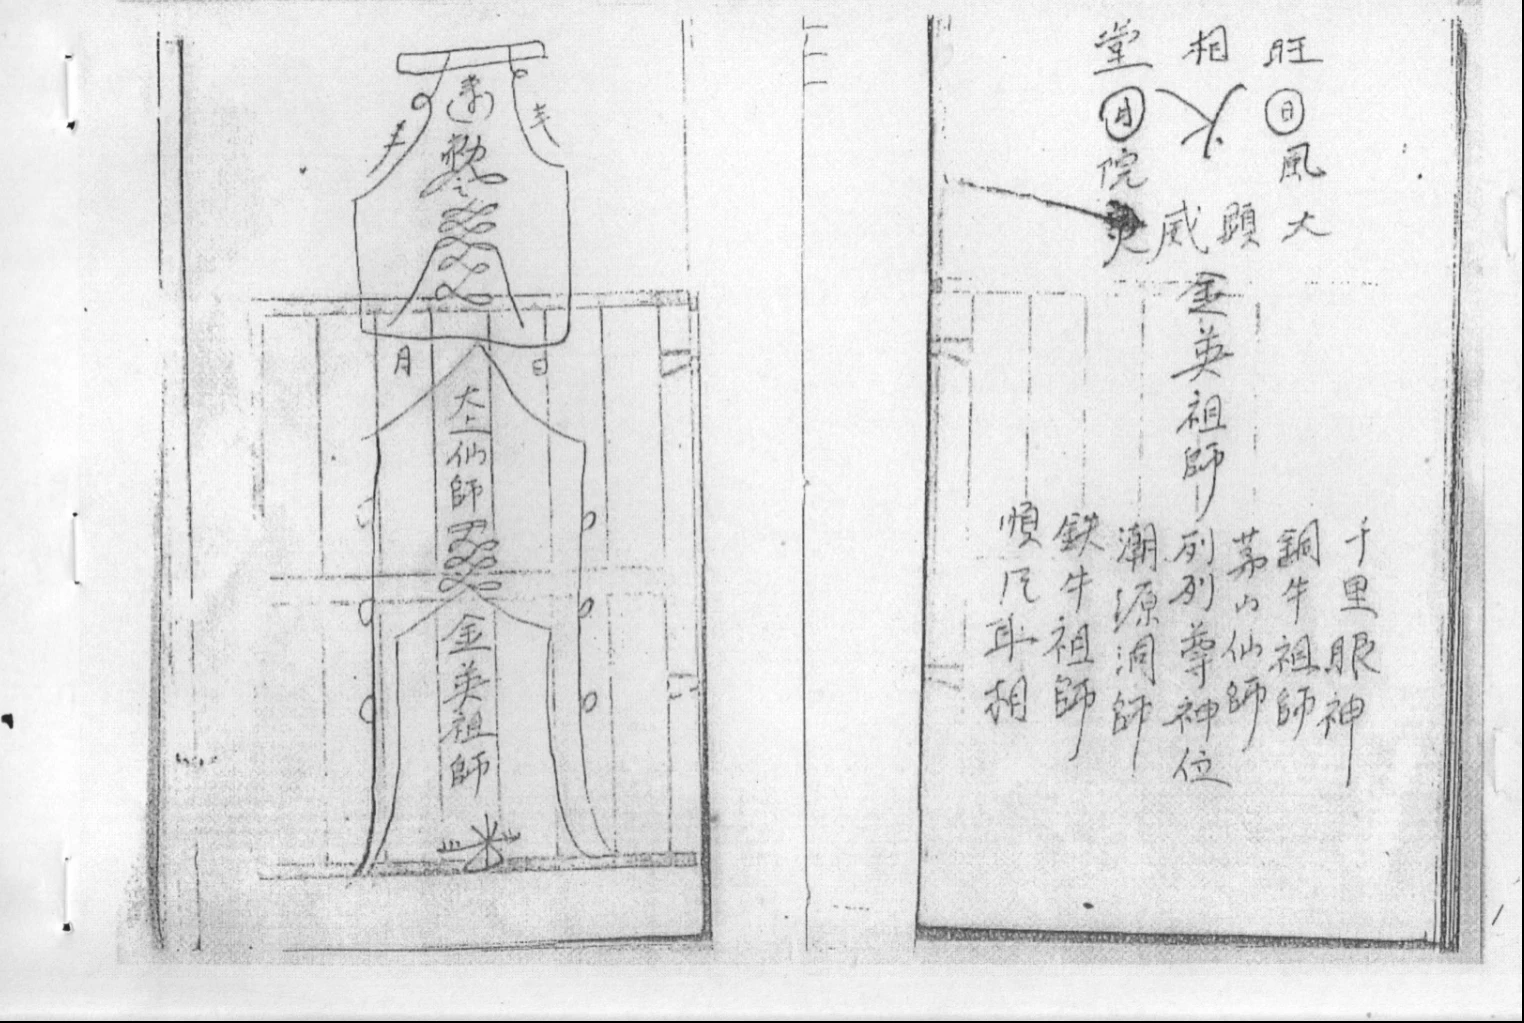 勅
月
日
大上仙師
金英祖師
旺 相 堂
日 月
風
院
大顕威灵
金英祖師
千里眼神
銅牛祖師
茅山仙師
列列尊神位
潮源洞師
鉄牛祖師
順风耳相